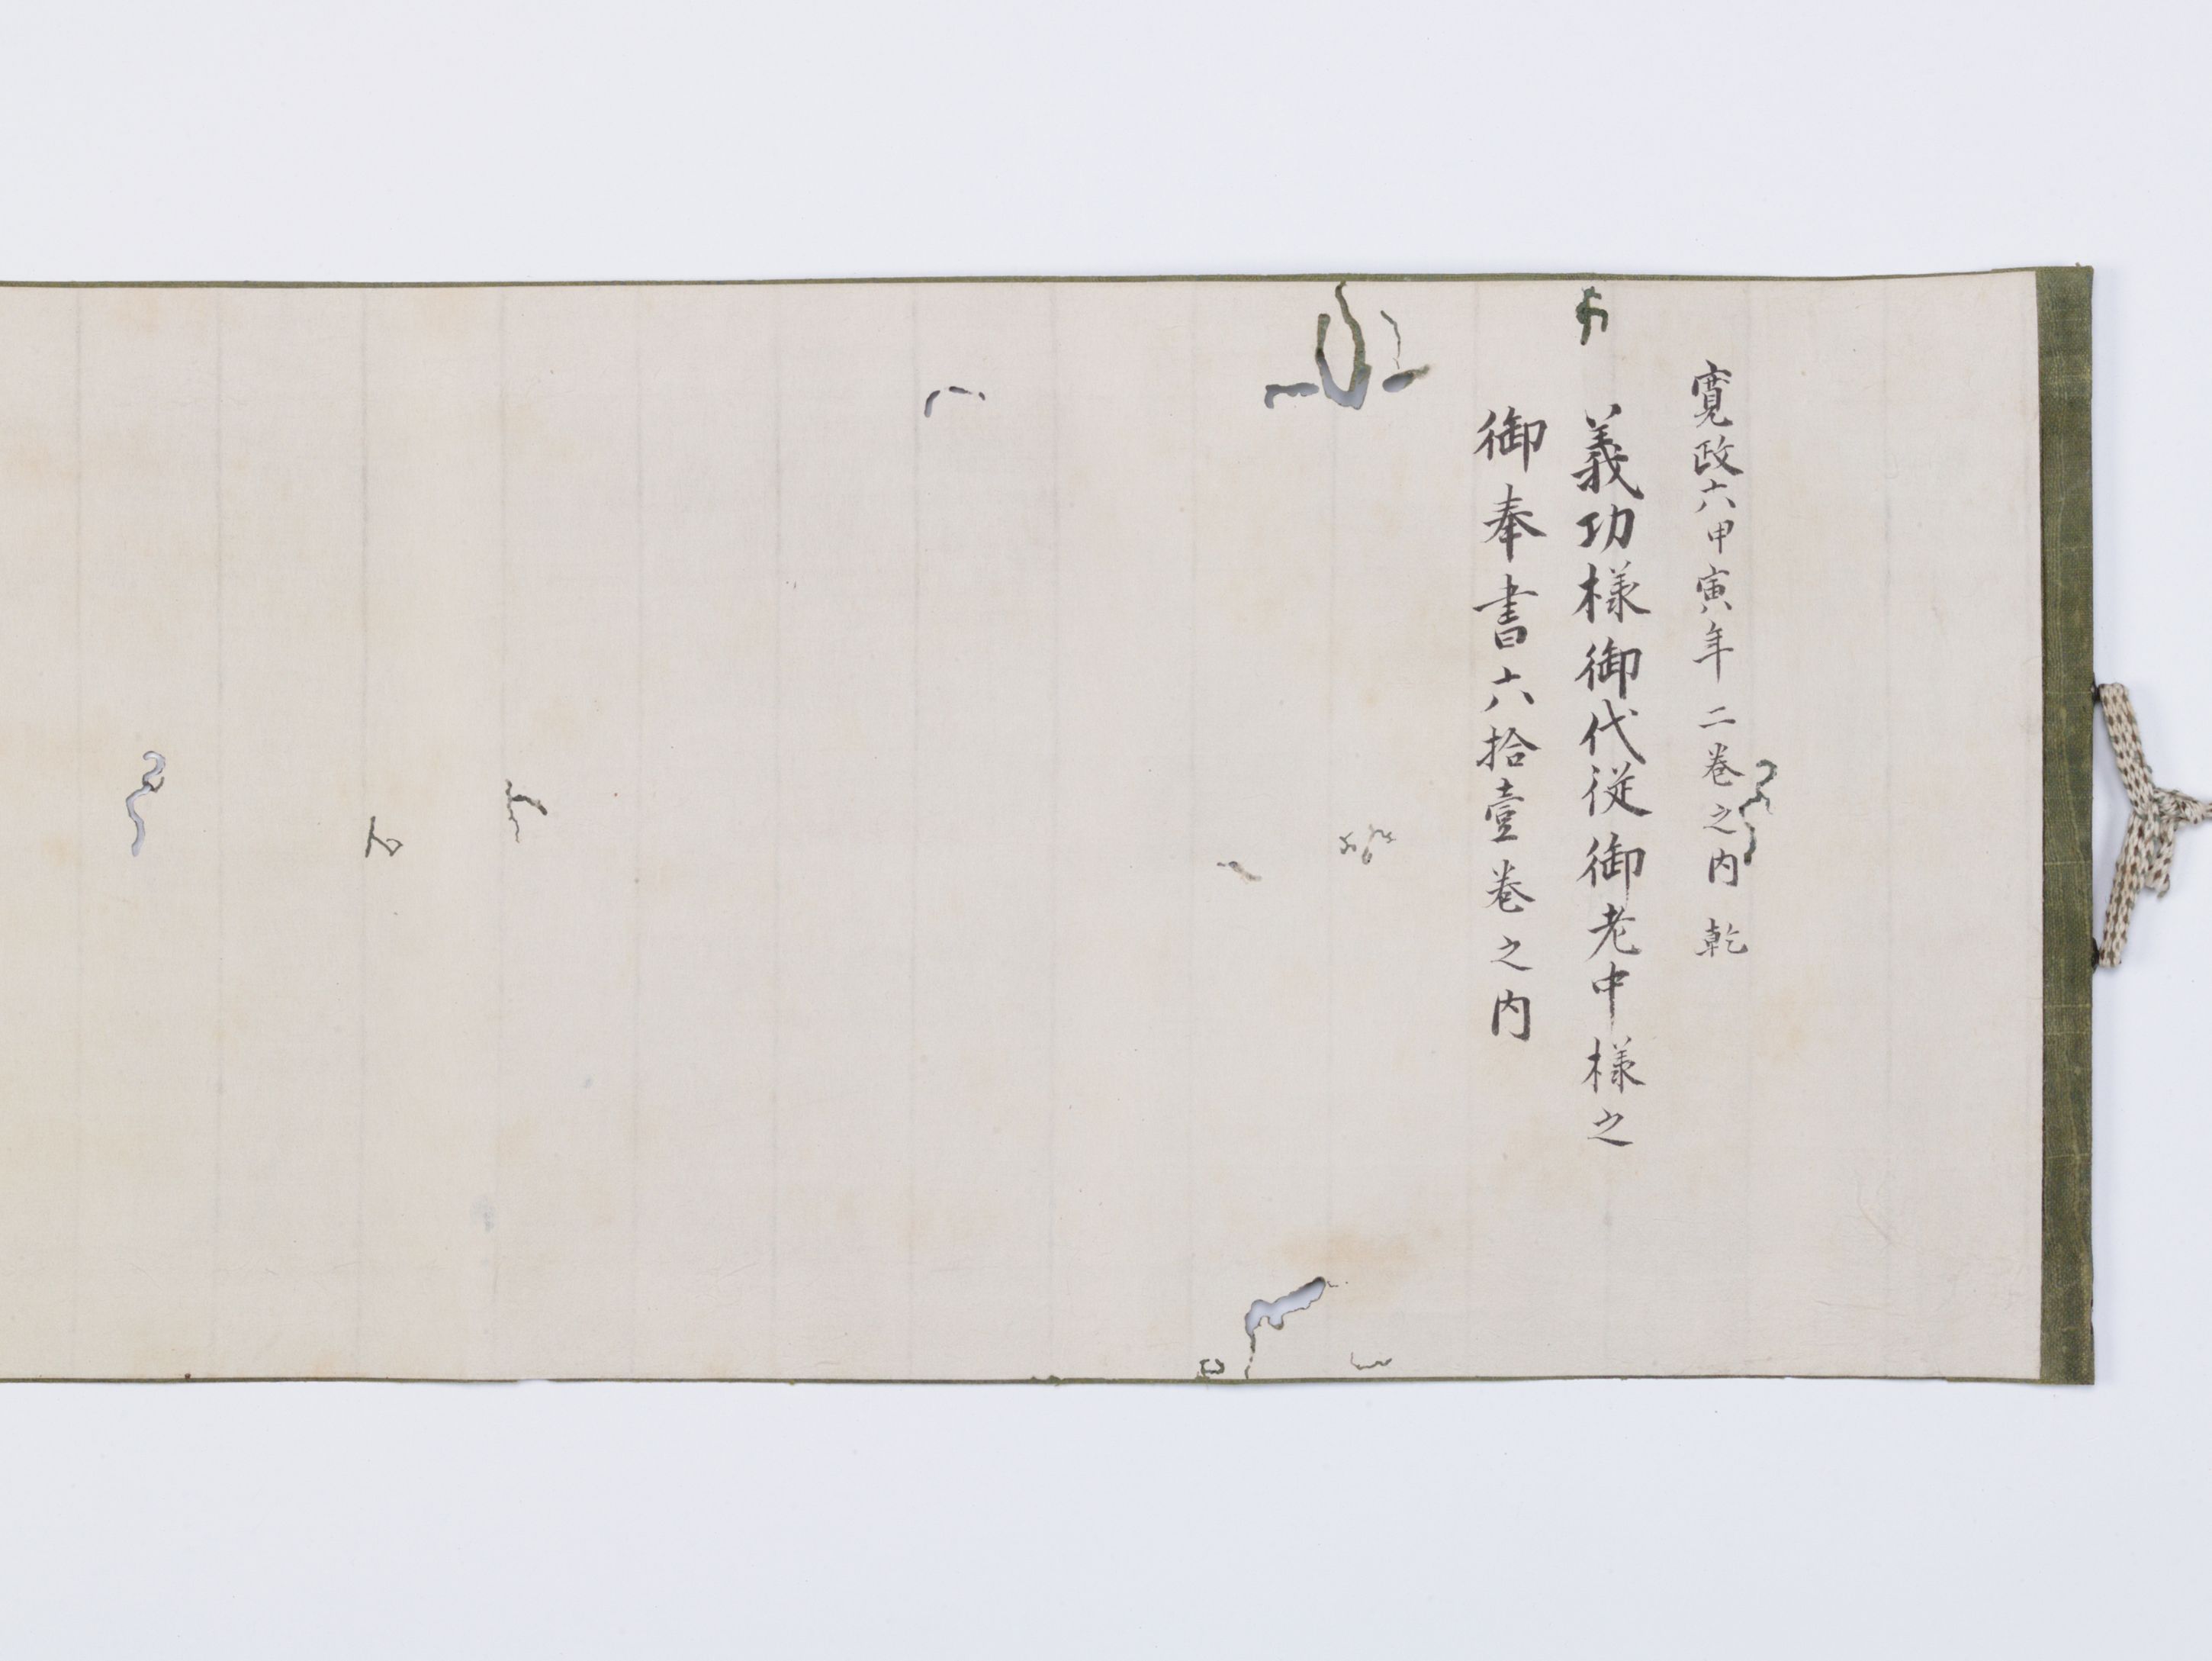 寛政六甲寅年 二巻之内 乾
義功様御代従御老中様之
御奉書六拾壹巻之内